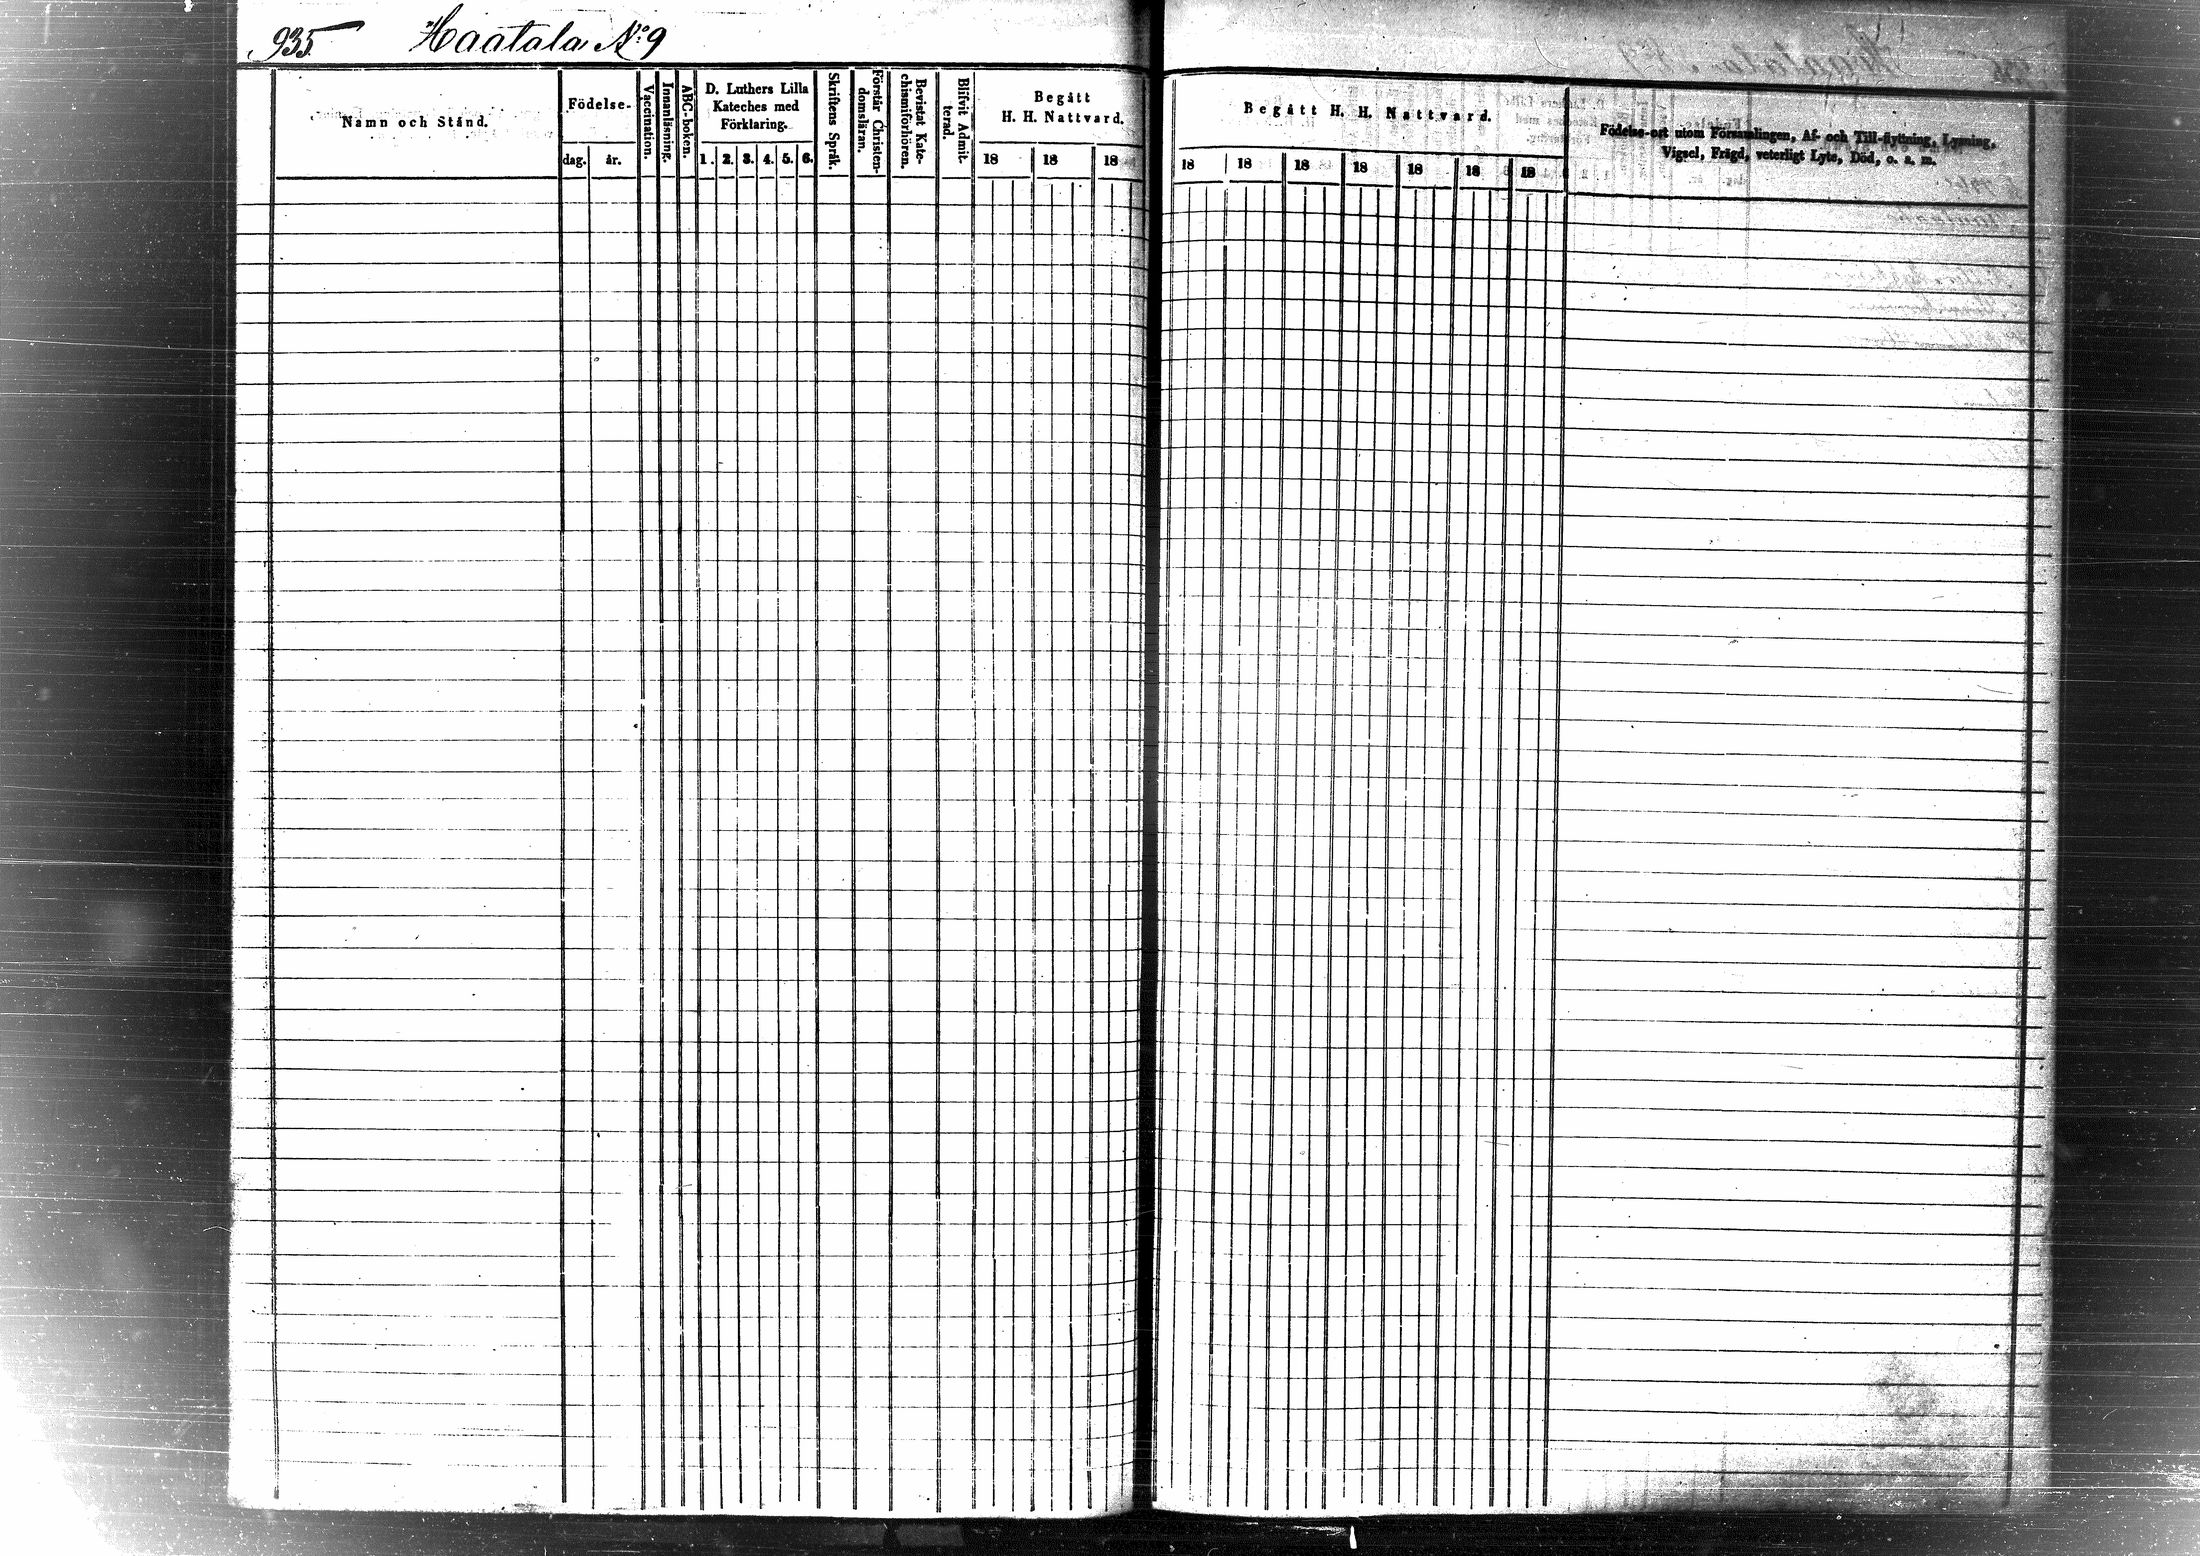 935 Haatala No 9
Namn och Stånd.
Födelse-
dag. år.
Vaccination.
Innanläsning.
ABC-boken.
D. Luthers Lilla
Kateches med
Förklaring.
1. 2. 3. 4. 5. 6.
Skriftens Språk.
Förstår Christen-
domsläran.
Bevistat Kate-
chismiförhören.
Blifvit Admit-
terad.
Begått
H. H. Nattvard.
18 18 18
Begått H. H. Nattvard.
18 18 18 18 18 18 18
Födelse-ort utom Församlingen, Af- och Till-flyttning, Lysning,
Vigsel, Frägd, veterligt Lyte, Död, o. s. m.